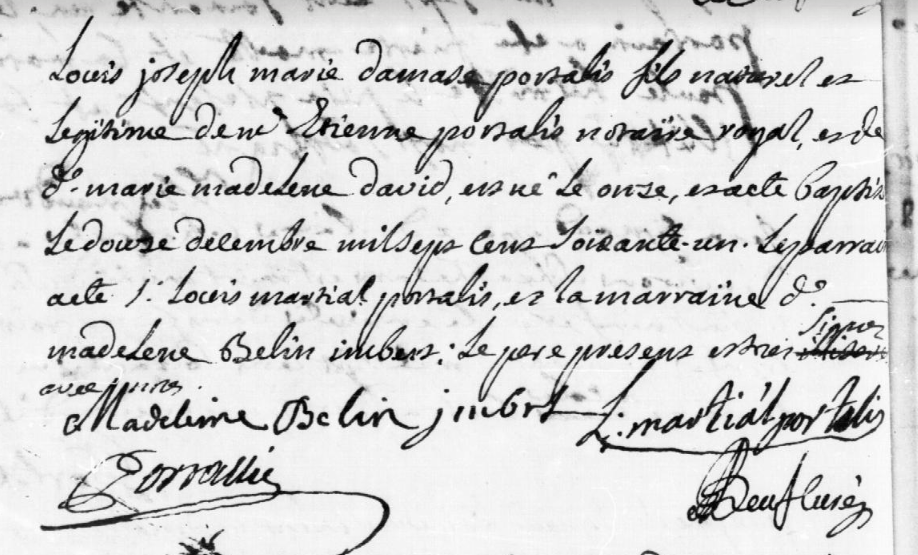 Louis joseph marie damase portalis fils naturel et
Legitime de me Etienne portalis notaire royal, et de
de. marie madelene david, est né Le onze, et a eté Baptisé
Le douze decembre mil sept cent soixante-un. Le parrain
a eté sr. Louis martial portalis, et la marraine de.
madelene Belin imbert; Le pere present signer
avec nous.
Madeleine Belin jmbert L: martial portalis
Portallis